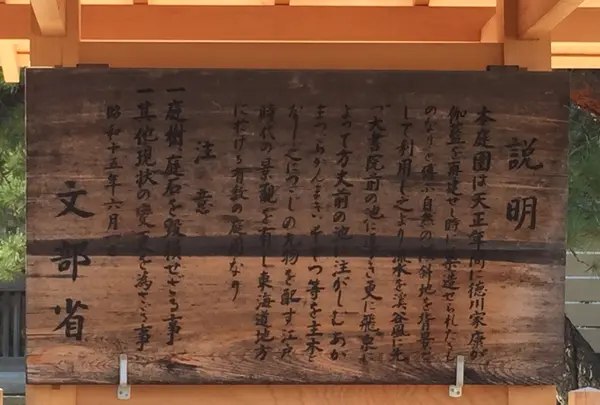 説明
本庭園は天正年間に徳川家康が
伽藍を再建せし時に築造せられたも
のなりと傳ふ自然の傾斜地を背景と
して利用し之より流水を渓谷風に先
づ大書院前の池に導き更に飛
よつて方丈前の池に注がしむあか
まつくろまつ等を主木と
なし之につゝじの丸物を配す江戸
時代の景観を有し東海道地方
に於ける有数の庭園なり
注意
一庭樹庭石を毀損せざる事
一其他現状の変更を為さゞる事
昭和十五年六月
文部省